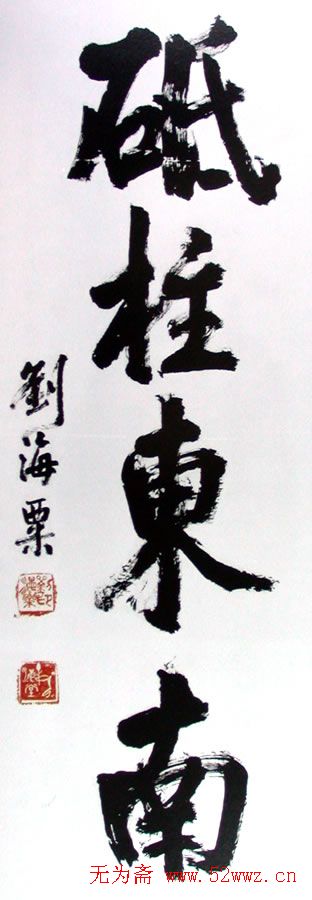 砥柱東南
劉海粟
无为斋 www.52wwz.cn